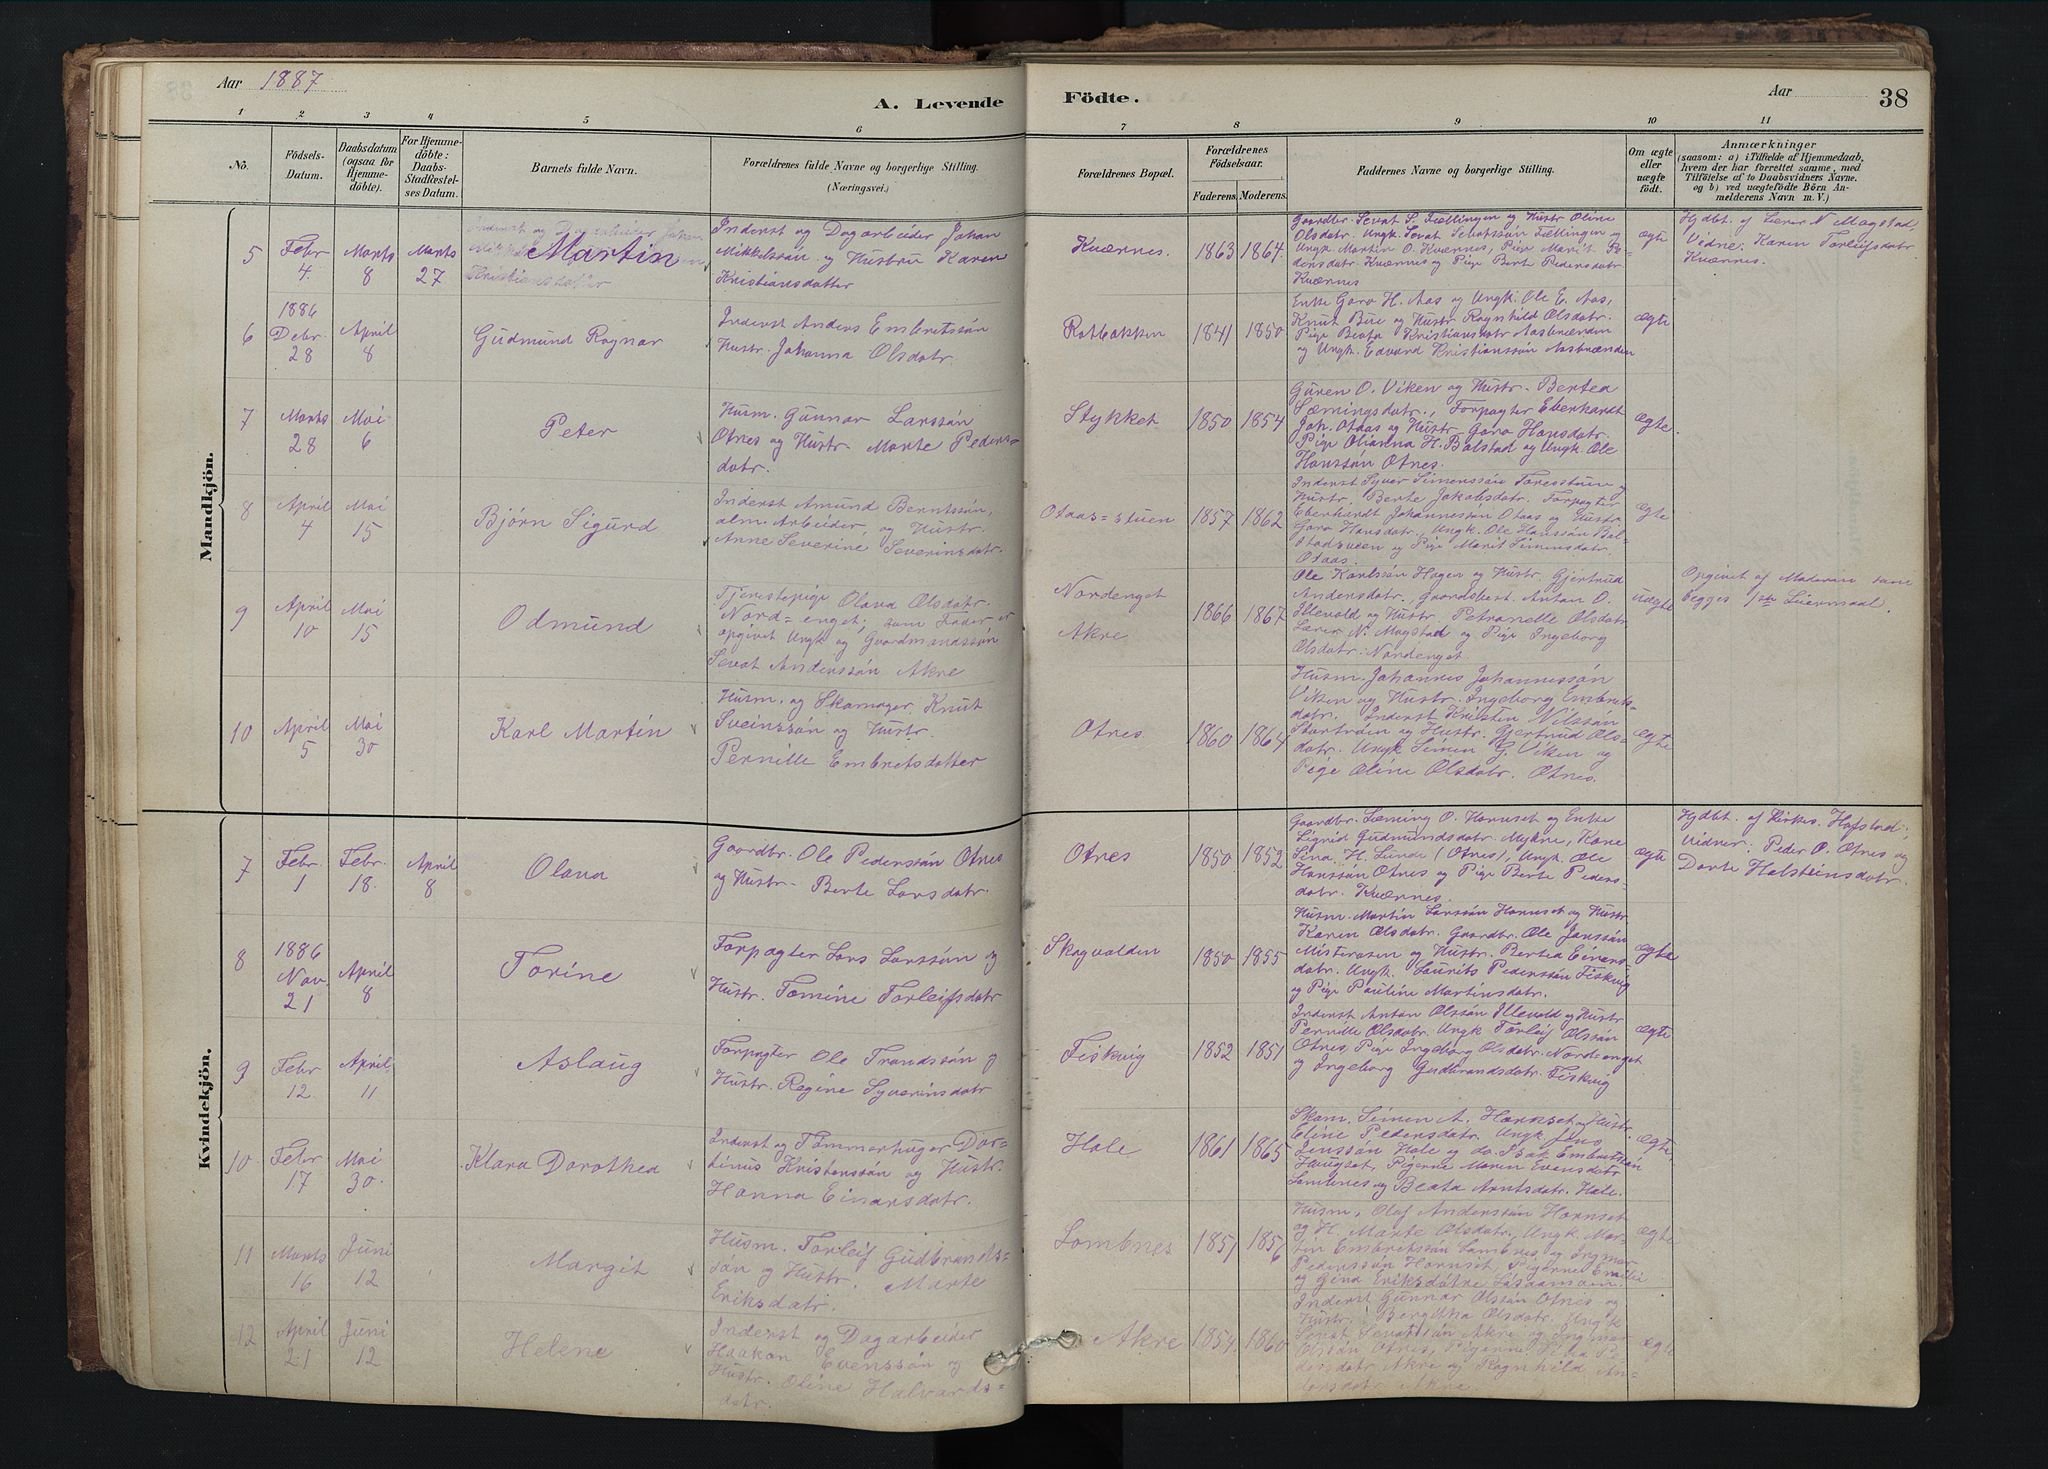 Aar 1887
A. Levende
Födte.
Aar
38
1 2 3 4 5 6 7 8 9 10 11
No.
Födsels-
Datum.
Daabsdatum
(ogsaa for
Hjemme-
döbte).
For Hjemme-
döbte:
Daabs-
Stadfæstel-
ses Datum.
Barnets fulde Navn.
Forældrenes fulde Navne og borgerlige Stilling.
(Næringsvei.)
Forældrenes Bopæl.
Forældrenes
Födselsaar.
Faderens. Moderens.
Faddernes Navne og borgerlige Stilling.
Om ægte
eller
uægte
födt.
Anmærkninger
(saasom: a) i Tilfælde af Hjemmedaab,
hvem der har forrettet samme, med
Tilföielse af to Daabsvidners Navne.
og b) ved uægtefödte Börn An-
melderens Navn m. V.)
Mandkjön.
5
Febr
4.
Marts
8
Marts
27
Martin
Inderst og Dagarbeider Johan
Mikkelssön og Hustru Karen
Kristiansdatter
Kværnes.
1863 1864.
Gaardbr. Sevat S. Fællingen og Hustr Oline
Olsdatr. Ungk. Sevat Sevatssön Fællingen og
Ungk. Martin O. Kværnes, Pige Marit Pe-
dersdatr. Kværnes og Pige Berte Pedersdatr.
Kværnes
ægte
Hjdbt. af Lærer N. Magstad,
Vidne: Karen Torleifsdatr
Kværnes.
6
1886
Debr.
28
April
8
Gudmund Ragnar
Inderst Anders Embretssön
Hustr. Johanna Olsdatr.
Ratbakken
1841 1850
Enke Goro H. Aas og Ungk. Ole E. Aas,
Knut Bue og Hustr. Ragnhild Olsdatr.
Pige Beata Kristiansdatr Aasbrænden
og Ungk. Edvard Kristianssön Aasbrænden
ægte
7
Marts
28
Mai
6
Peter
Husm. Gunnar Larssön
Otnes og Hustr. Marte Peders-
datr.
Stykket
1850 1854
Guren O. Viken og Hustr. Bertea
Sæmingsdatr., Forpagter Eberhardt
Joh. Otaas og Hustr. Goro Hansdatr.
Pige Olianna H. Bolstad og Ungk. Ole
Hanssön Otnes.
ægte.
8
April
4
Mai
15
Bjørn Sigurd
Inderst Amund Berntssön,
alm. Arbeider og Hustr.
Anne Severine Severinsdatr.
Otaas=stuen
1857 1862
Inderst Syver Simenssön Foresstuen og
Hustr. Berte Jakobsdatr. Forpagter
Eberhardt Johannessön Otaas og Hustr.
Goro Hansdatr., Ungk. Ole Hanssön Bol-
stadsveen og Pige Marit Simensdatr.
Otaas.
ægte
9
April
10
Mai
15
Odmund
Tjenestepige Olava Olsdatr.
Nord=enget; som Fader er
opgivet Ungk og Gaardmandssön
Sevat Anderssön Akre
Nordenget
Akre
1866 1867
Ole Karlssön Hagen og Hustr. Gjertrud
Andersdatr., Gaardsbest. Anton O.
Illevold og Hustr. Petranelle Olsdatr.
Lærer N. Magstad og Pige Ingeborg
Olsdatr. Nordenget.
uægte
Opgivet af Moderen som
begges 1ste Leiermaal.
10
April
5
Mai
30
Karl Martin
Husm. og Skomager Knut
Sveinssön og Hustr.
Pernille Embretsdatter
Otnes
1860 1864
Husm. Johannes Johannessön
Viken og Hustr. Ingeborg Embrets-
datr. Inderst Kristen Nilssön
og Hustr. Gjertrud Ols-
datr. Ungk Simen G. Viken og
Pige Oline Olsdatr. Otnes.
ægte
Kvindekjön.
7
Febr.
1
Febr.
18.
April
8
Olava
Gaardbr. Ole Pederssön Otnes
og Hustr. Berte Larsdatr.
Otnes
1850. 1852
Gaardbr. Sæming O. Hornset og Enke
Sigrid Gudmundsdatr. Mykre, Kone
Sina H. Lunde (Otnes), Ungk. Ole
Hanssön Otnes og Pige Berte Peders-
datr. Kværnes.
ægte
Hjdbt. af Kirkes. Hafstad;
Vidner. Peder O. Otnes og
Dorte Halsteinsdatr.
8
1886
Nov.
21
April
8
Torine
Forpagter Lars Larssön og
Hustr. Tomine Torleifsdatr
Skogvolden
1850 1855
Husm. Martin Larssön Hornset og Hustr.
Karen Olsdatr. Gaardbr. Ole Janssön
Misterosen og Hustr. Bertea Einars-
datr. Ungk. Laurits Pederssön Fiskvig
og Pige Pauline Martinsdatr.
ægte
9
Febr
12.
April
11
Aslaug
Forpagter Ole Trondssön og
Hustr. Regine Syverinsdatr
Fiskvig
1852 1851
Inderst Anton Olssön Illevold og Hustr
Pernille Olsdatr. Ungk Torleif Olssön
Otnes, Pige Ingeborg Olsdatr. Nordenget
og Ingeborg Gudbrandsdatr. Fiskvig
ægte
10
Febr
17
Mai
30.
Klara Dorothea
Inderst og Tømmerhuger Dor-
tinus Kristenssön og Hustr.
Hanna Einarsdatr.
Hole
1861 1865
Skom. Simen A. Harkset og Hustr.
Eline Pedersdatr. Ungk Jens
Jenssön Hole og do. Isak Embretssön
Haugset, Pigerne Maren Evensdatr.
Lombnes og Beata Arntsdatr. Hole.
ægte
11
Marts
16
Juni
12
Margit
Husm. Torleif Gudbrands-
sön og Hustr. Marte
Eriksdatr.
Lombnes
1851 1856
Husm. Olaf Anderssön Hornset
og H. Marte Olsdatr. Ungk. Mar-
tin Embretssön Lombnes og Ingmar
Pederssön Hornset. Pigerne Emilie
og Gina Eriksdatre
ægte
12
April
21
Juni
12
Helene
Inderst og Dagarbeider
Haakon Evenssön og
Hustr. Oline Halvards-
datr.
Akre
1854 1860
Inderst Gunnar Olssön Otnes og
Hustr. Berethe Olsdatr. Ungk
Sevat Sevatssön Akre og Ingmar
Olssön Otnes, Pigerne Pe-
dersdatr Akre og Ragnhild An-
dersdatr. Akre
ægte